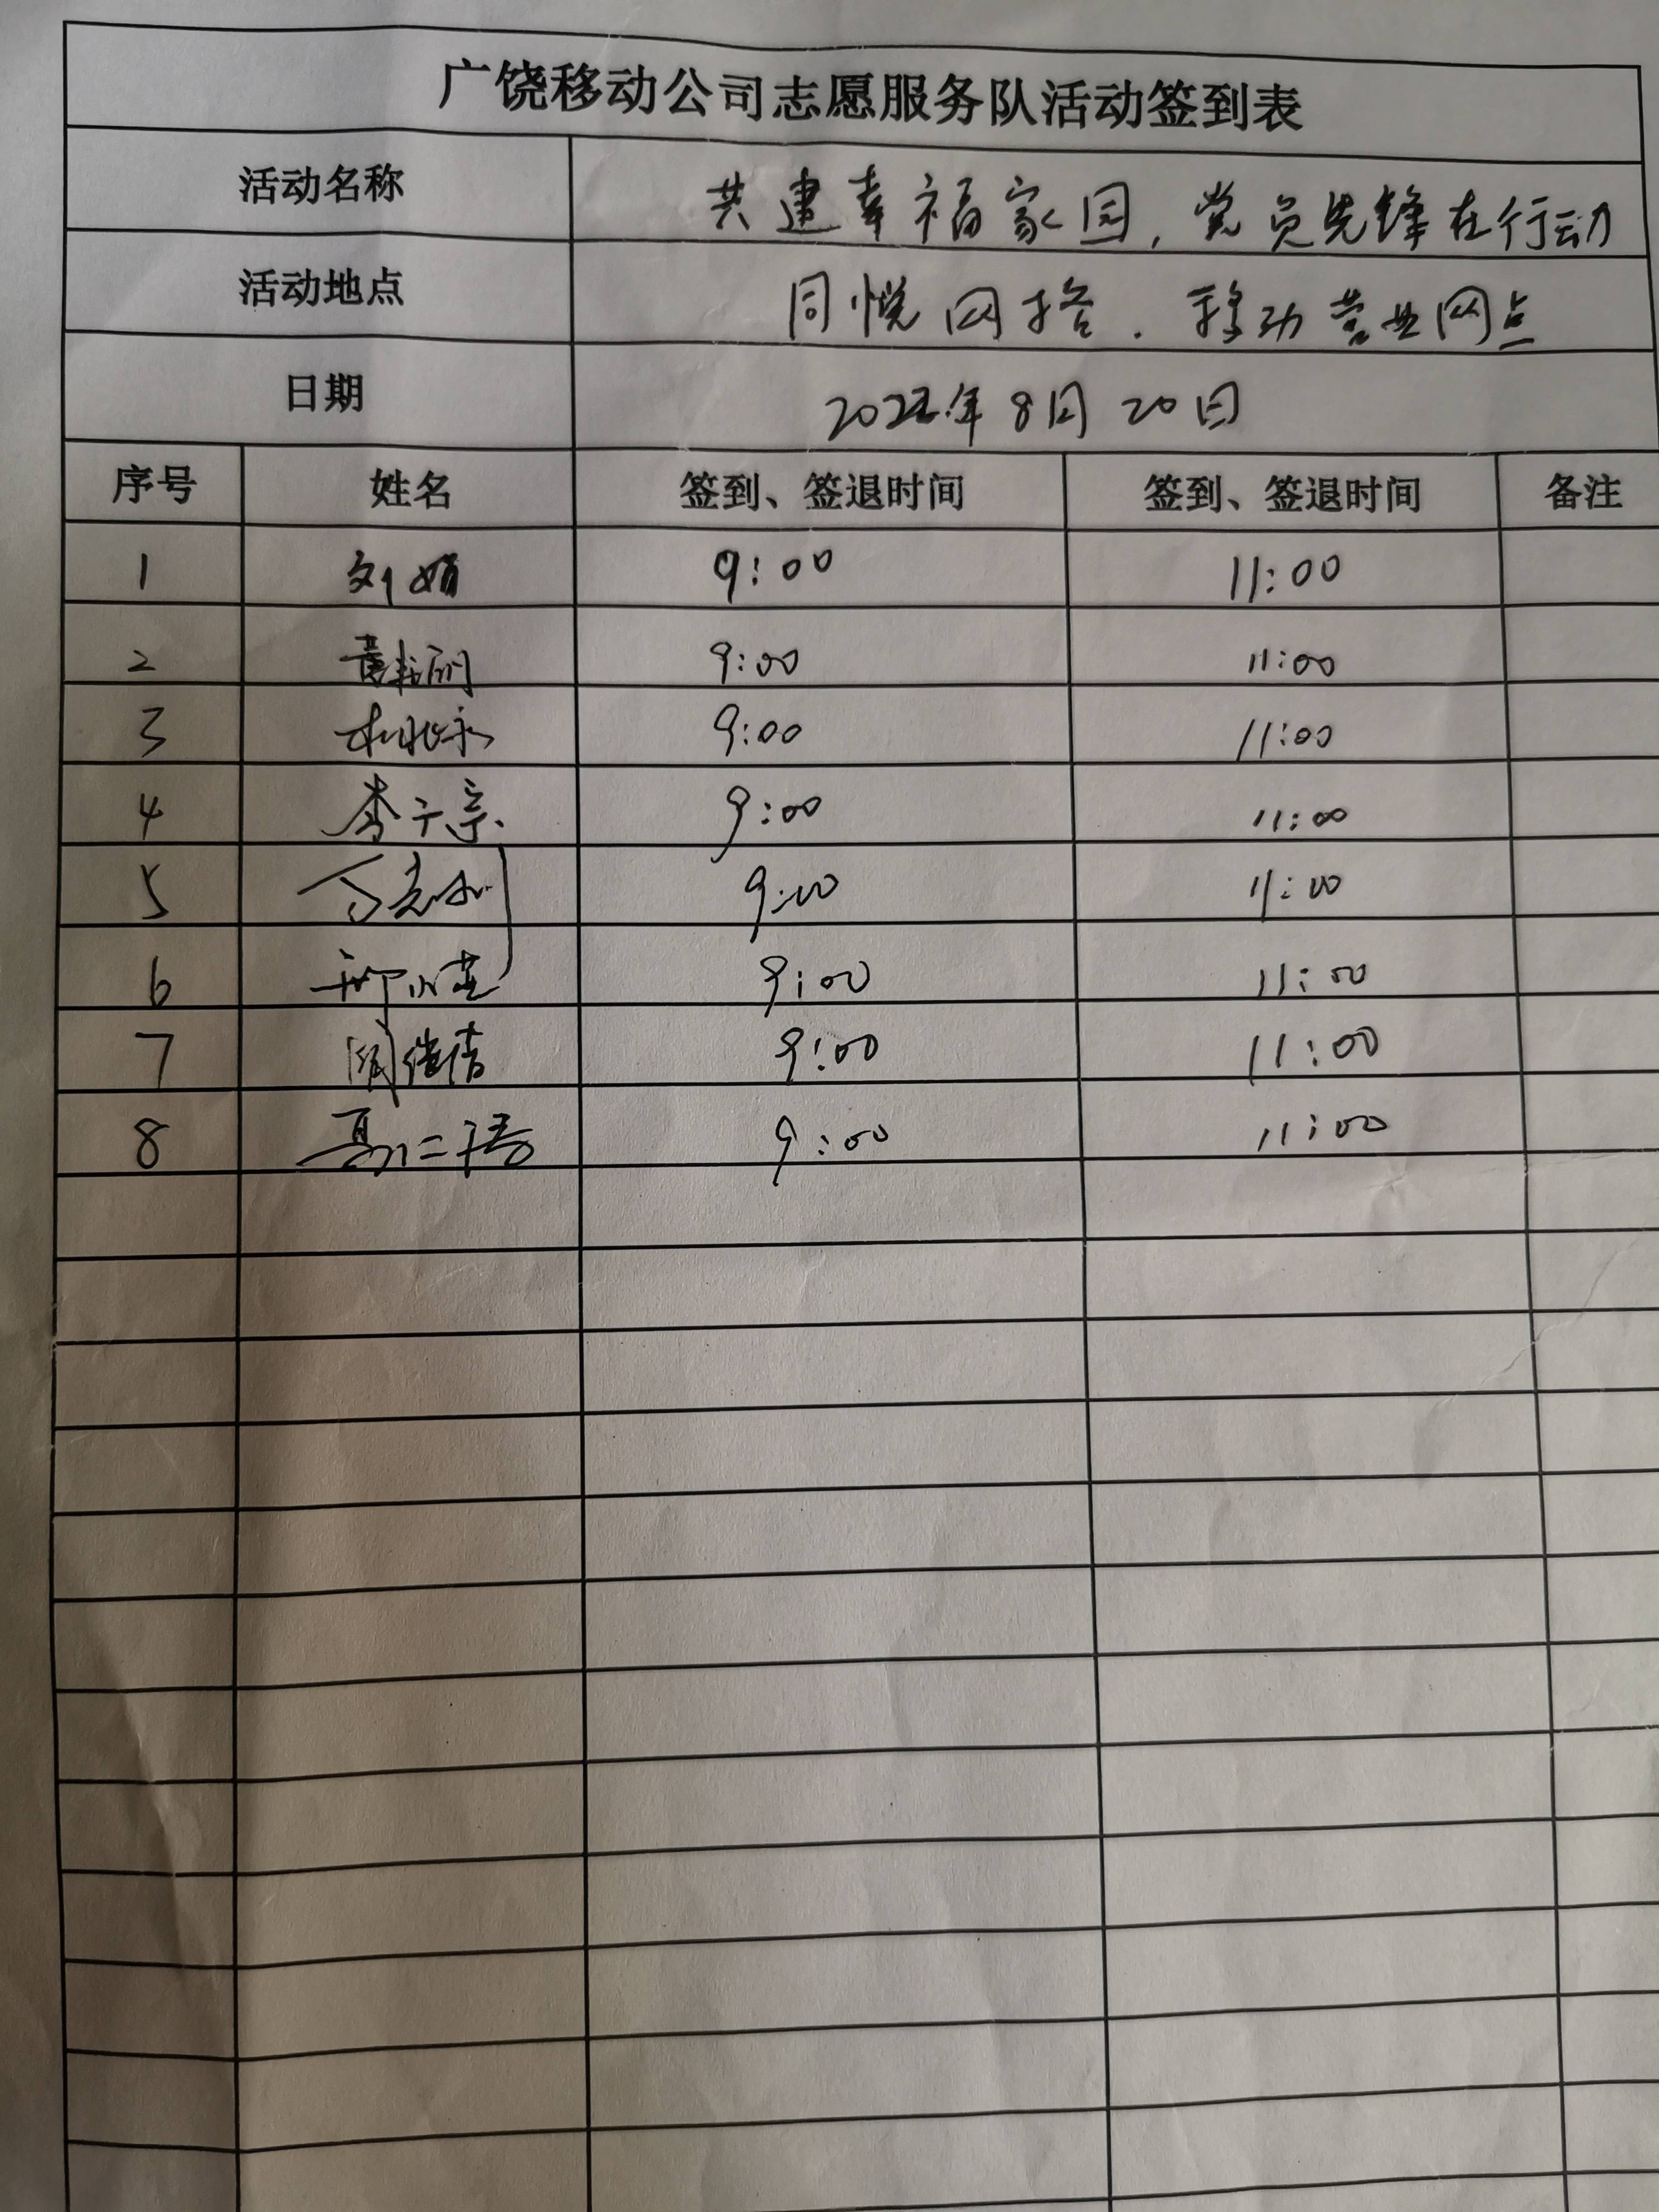 广饶移动公司志愿服务队活动签到表
活动名称 共建幸福家园,党员先锋在行动
活动地点 同悦网格.移动营业网点
日期 2022年8月20日
序号 姓名 签到、签退时间 签到、签退时间 备注
1 刘娟 9:00 11:00
2 9:00 11:00
3 9:00 11:00
4 李子宗 9:00 11:00
5 9:00 11:00
6 9:00 11:00
7 9:00 11:00
8 9:00 11:00